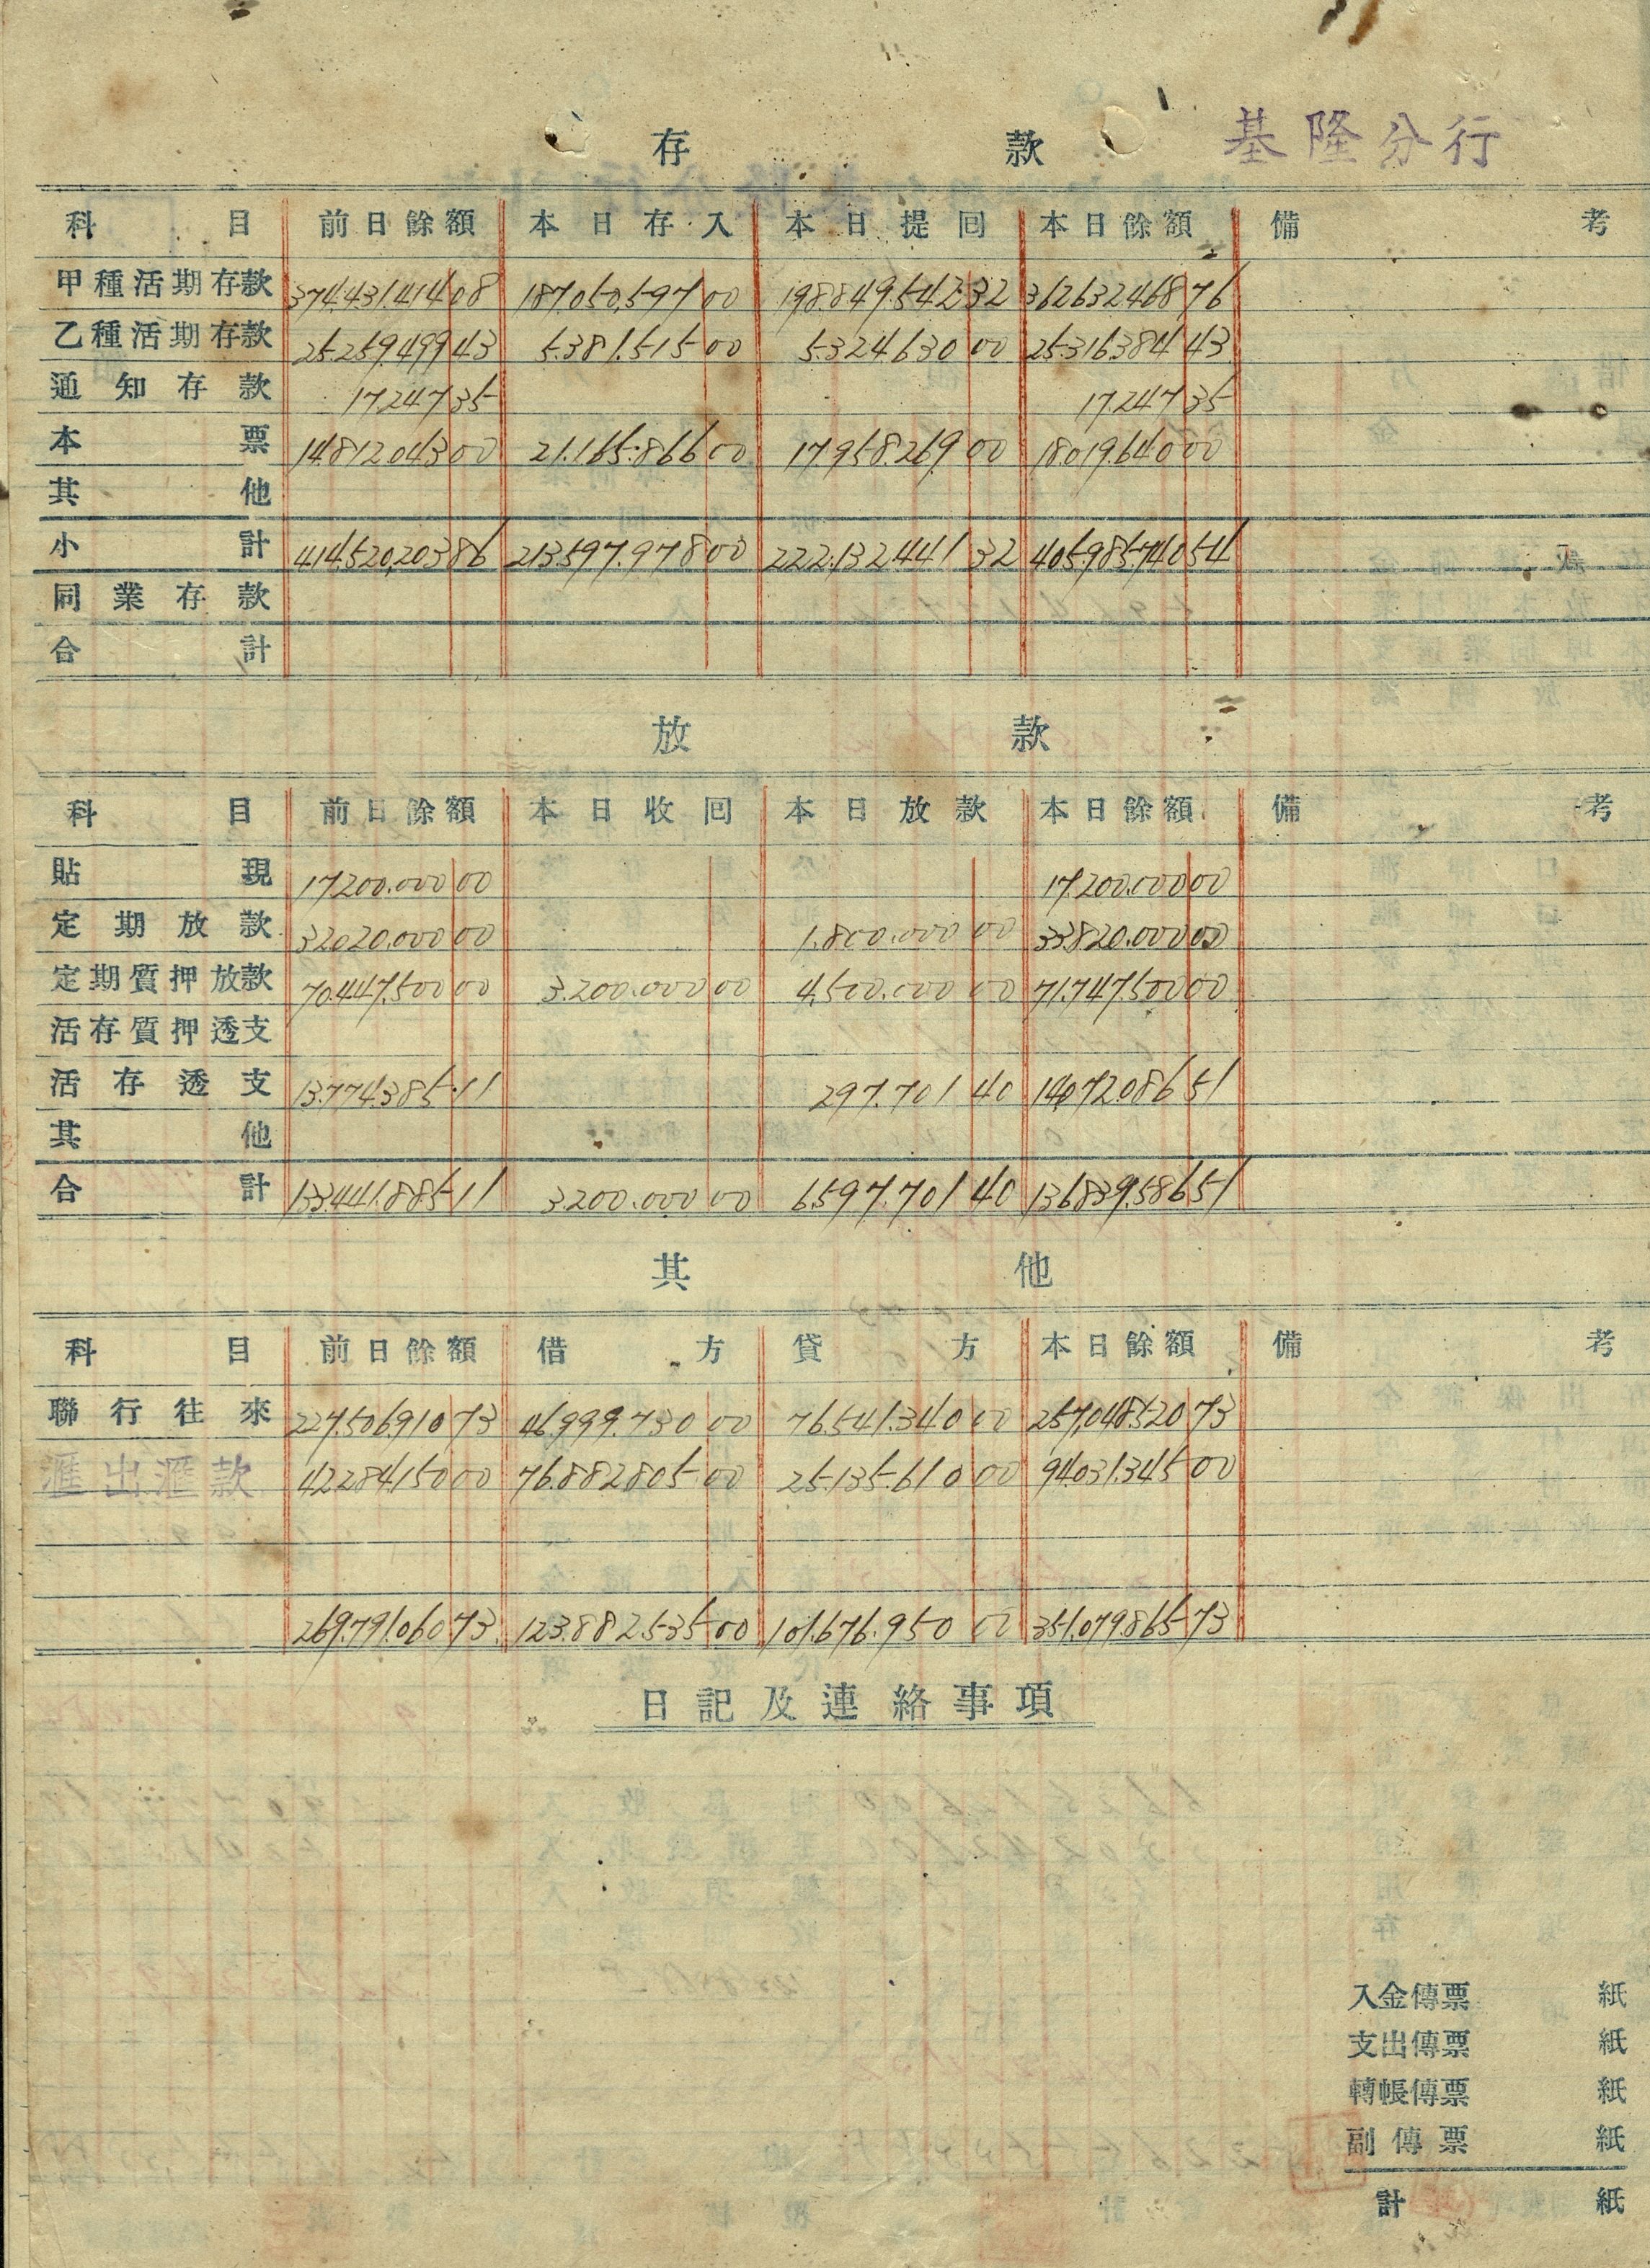 存款 基隆分行
科目 前日餘額 本日存入 本日提回 本日餘額 備考
甲種活期存款 374.431.414 08 187.050.597 00 198.849.542 32 362632468 76
乙種活期存款 25.259.499 43 5.381.515 00 5.324.630 00 25.316.384 43
通知存款 17.247 35 17.247 35
本票 14.812.043 00 21.165.866 00 17.958.269 00 18.019.640 00
其他
小計 414.520.203 86 213.597.978 00 222.132.441 32 405.985.740 54
同業存款
合計
放款
科目 前日餘額 本日收回 本日放款 本日餘額 備考
貼現 17.200.000 00 17.200.000 00
定期放款 32.020.000 00 1.800.000 00 33.820.000 00
定期質押放款 70.447.500 00 3.200.000 00 4.500.000 00 71.747.500 00
活存質押透支
活存透支 13.774.385 11 297.701 40 14.072.086 51
其他
合計 133.441.885 11 3.200.000 00 6.597.701 40 136.839.586 51
其他
科目 前日餘額 借方 貸方 本日餘額 備考
聯行往來 227.506.910 73 46.999.730 00 76.541.340 00 257.048.520 73
滙出滙款 42.284.150 00 76.882.805 00 25.135.610 00 94.031.345 00
269.791.060 73 123.882.535 00 101.676.950 00 351.079.865 73
日記及連絡事項
入金傳票 紙
支出傳票 紙
轉帳傳票 紙
副傳票 紙
計 紙